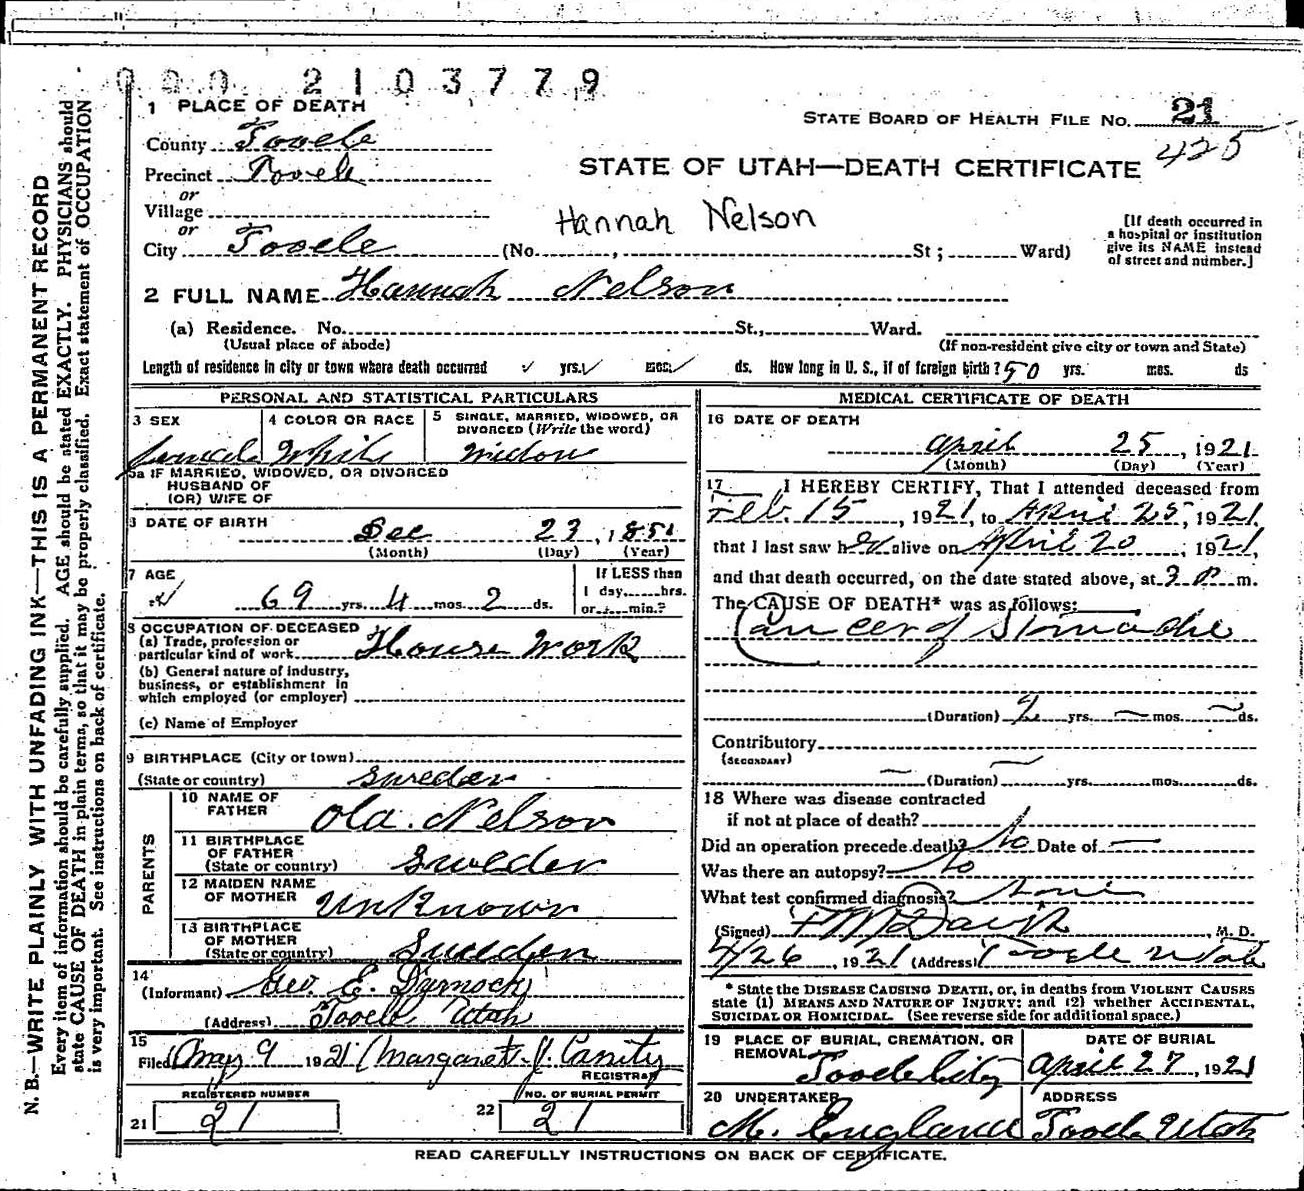 000 2103779
1 PLACE OF DEATH
STATE BOARD OF HEALTH FILE NO. 21
425
County Tooele
Precinct Tooele
STATE OF UTAH—DEATH CERTIFICATE
or
Village
or
Hannah Nelson
[If death occurred in
a hospital or institution
give its NAME instead
of street and number.]
City Tooele (No. , St ; Ward)
2 FULL NAME Hannah Nelson
(a) Residence. No. St., Ward.
(Usual place of abode) (If non-resident give city or town and State)
Length of residence in city or town where death occurred ✓ yrs. ✓ mos. ✓ ds. How long in U. S., if of foreign birth? 50 yrs. mos. ds
PERSONAL AND STATISTICAL PARTICULARS
3 SEX
female
4 COLOR OR RACE
White
5 SINGLE, MARRIED, WIDOWED, OR
DIVORCED (Write the word)
widow
5a IF MARRIED, WIDOWED, OR DIVORCED
HUSBAND OF
(OR) WIFE OF
6 DATE OF BIRTH
Dec 23, 1851
(Month) (Day) (Year)
7 AGE
69 yrs. 4 mos. 2 ds.
If LESS than
1 day, hrs.
or min.?
8 OCCUPATION OF DECEASED
(a) Trade, profession or
particular kind of work House Work
(b) General nature of industry,
business, or establishment in
which employed (or employer)
(c) Name of Employer
9 BIRTHPLACE (City or town)
(State or country) Sweden
PARENTS
10 NAME OF
FATHER Ola. Nelson
11 BIRTHPLACE
OF FATHER
(State or country) Sweden
12 MAIDEN NAME
OF MOTHER Unknown
13 BIRTHPLACE
OF MOTHER
(State or country) Sweden
14
(Informant) Geo. E. Dymock
(Address) Tooele Utah
15
Filed May 9 1921 Margaret J.
REGISTRAR
REGISTERED NUMBER
21 21
NO. OF BURIAL PERMIT
22 21
MEDICAL CERTIFICATE OF DEATH
16 DATE OF DEATH
April 25, 1921.
(Month) (Day) (Year)
17 I HEREBY CERTIFY, That I attended deceased from
Feb. 15, 1921, to April 25, 1921,
that I last saw her alive on April 20, 1921,
and that death occurred, on the date stated above, at 3 P m.
The CAUSE OF DEATH* was as follows:
Cancer of Stomache
(Duration) 2 yrs. — mos. — ds.
Contributory
(SECONDARY)
— (Duration) — yrs. mos. ds.
18 Where was disease contracted
if not at place of death?
Did an operation precede death? No Date of —
Was there an autopsy? No
What test confirmed diagnosis?
(Signed) F M Davis, M. D.
4/26, 1921 (Address) Tooele Utah
* State the DISEASE CAUSING DEATH, or, in deaths from VIOLENT CAUSES
state (1) MEANS AND NATURE OF INJURY; and (2) whether ACCIDENTAL,
SUICIDAL OR HOMICIDAL. (See reverse side for additional space.)
19 PLACE OF BURIAL, CREMATION, OR
REMOVAL
Tooele City
DATE OF BURIAL
April 27, 1921
20 UNDERTAKER
M. England
ADDRESS
Tooele Utah
READ CAREFULLY INSTRUCTIONS ON BACK OF CERTIFICATE.
N. B.—WRITE PLAINLY WITH UNFADING INK—THIS IS A PERMANENT RECORD
Every item of information should be carefully supplied. AGE should be stated EXACTLY. PHYSICIANS should
state CAUSE OF DEATH in plain terms, so that it may be properly classified. Exact statement of OCCUPATION
is very important. See instructions on back of certificate.